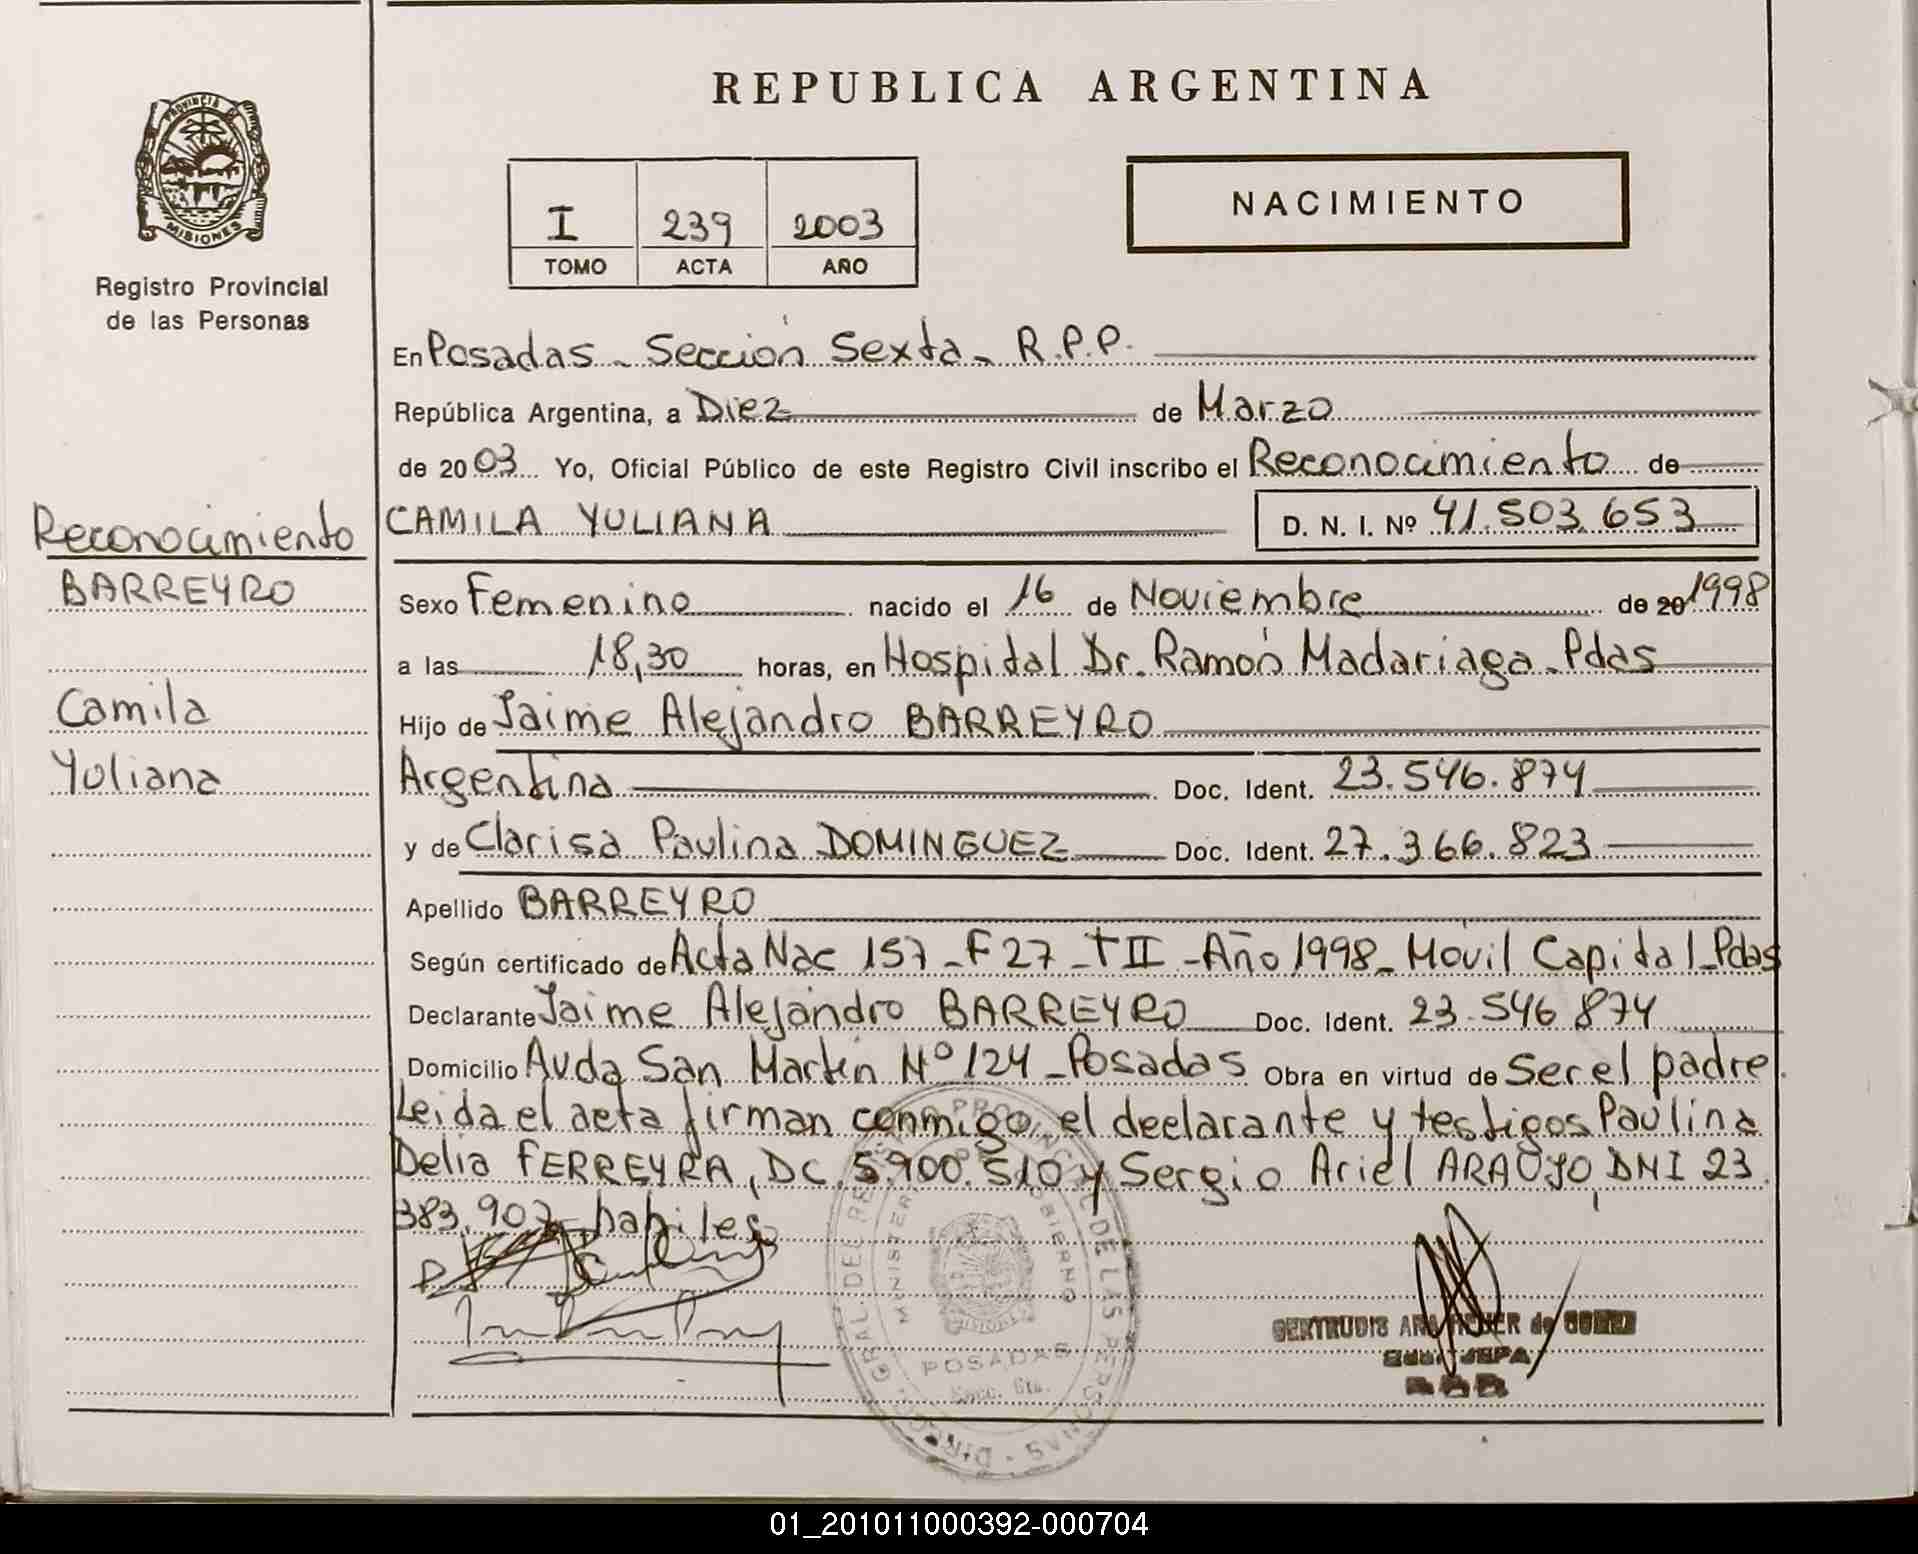 PROVINCIA DE
MISIONES
Registro Provincial
de las Personas
Reconocimiento
BARREYRO
Camila
Yuliana
REPUBLICA ARGENTINA
I 239 2003
TOMO ACTA AÑO
NACIMIENTO
En Posadas - Sección Sexta - R.P.P.
República Argentina, a Diez de Marzo
de 2003 Yo, Oficial Público de este Registro Civil inscribo el Reconocimiento de
CAMILA YULIANA D. N. I. Nº 41.503.653
Sexo Femenino nacido el 16 de Noviembre de 20 1998
a las 18,30 horas, en Hospital Dr. Ramón Madariaga - Pdas
Hijo de Jaime Alejandro BARREYRO
Argentina Doc. Ident. 23.546.874
y de Clarisa Paulina DOMINGUEZ Doc. Ident. 27.366.823
Apellido BARREYRO
Según certificado de Acta Nac 157 - F 27 - T II - Año 1998 - Móvil Capital - Pdas
Declarante Jaime Alejandro BARREYRO Doc. Ident. 23.546.874
Domicilio Avda San Martín Nº 124 - Posadas Obra en virtud de Ser el padre.
Leida el acta firman conmigo, el declarante y testigos Paulina
Delia FERREYRA, DC 5.900.510 y Sergio Ariel ARAUJO, DNI 23.
383.907 habiles
DIREC. GRAL. DEL REG. PROVINCIAL DE LAS PERSONAS
MINISTERIO DE GOBIERNO
MISIONES
POSADAS
Secc. 6ta.
GERTRUDIS ANA de